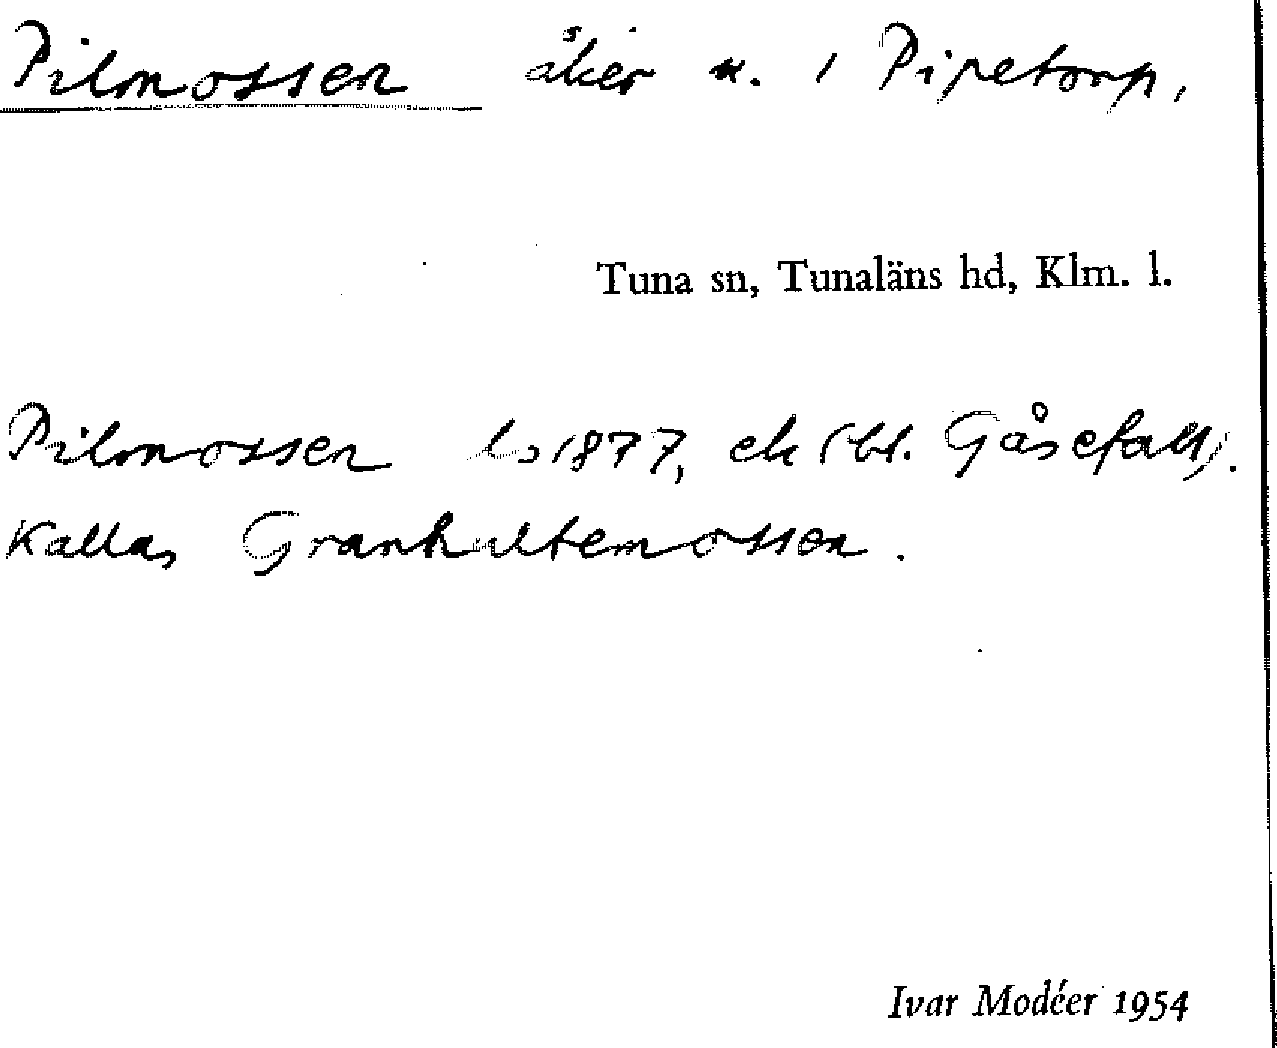 Pilmossen åker n. i Pipetorp,
Tuna sn, Tunaläns hd, Klm. l.
Pilmossen Ls 1877, ek (bl. Gåsefall).
Kallas Granhultemossen.
Ivar Modéer 1954